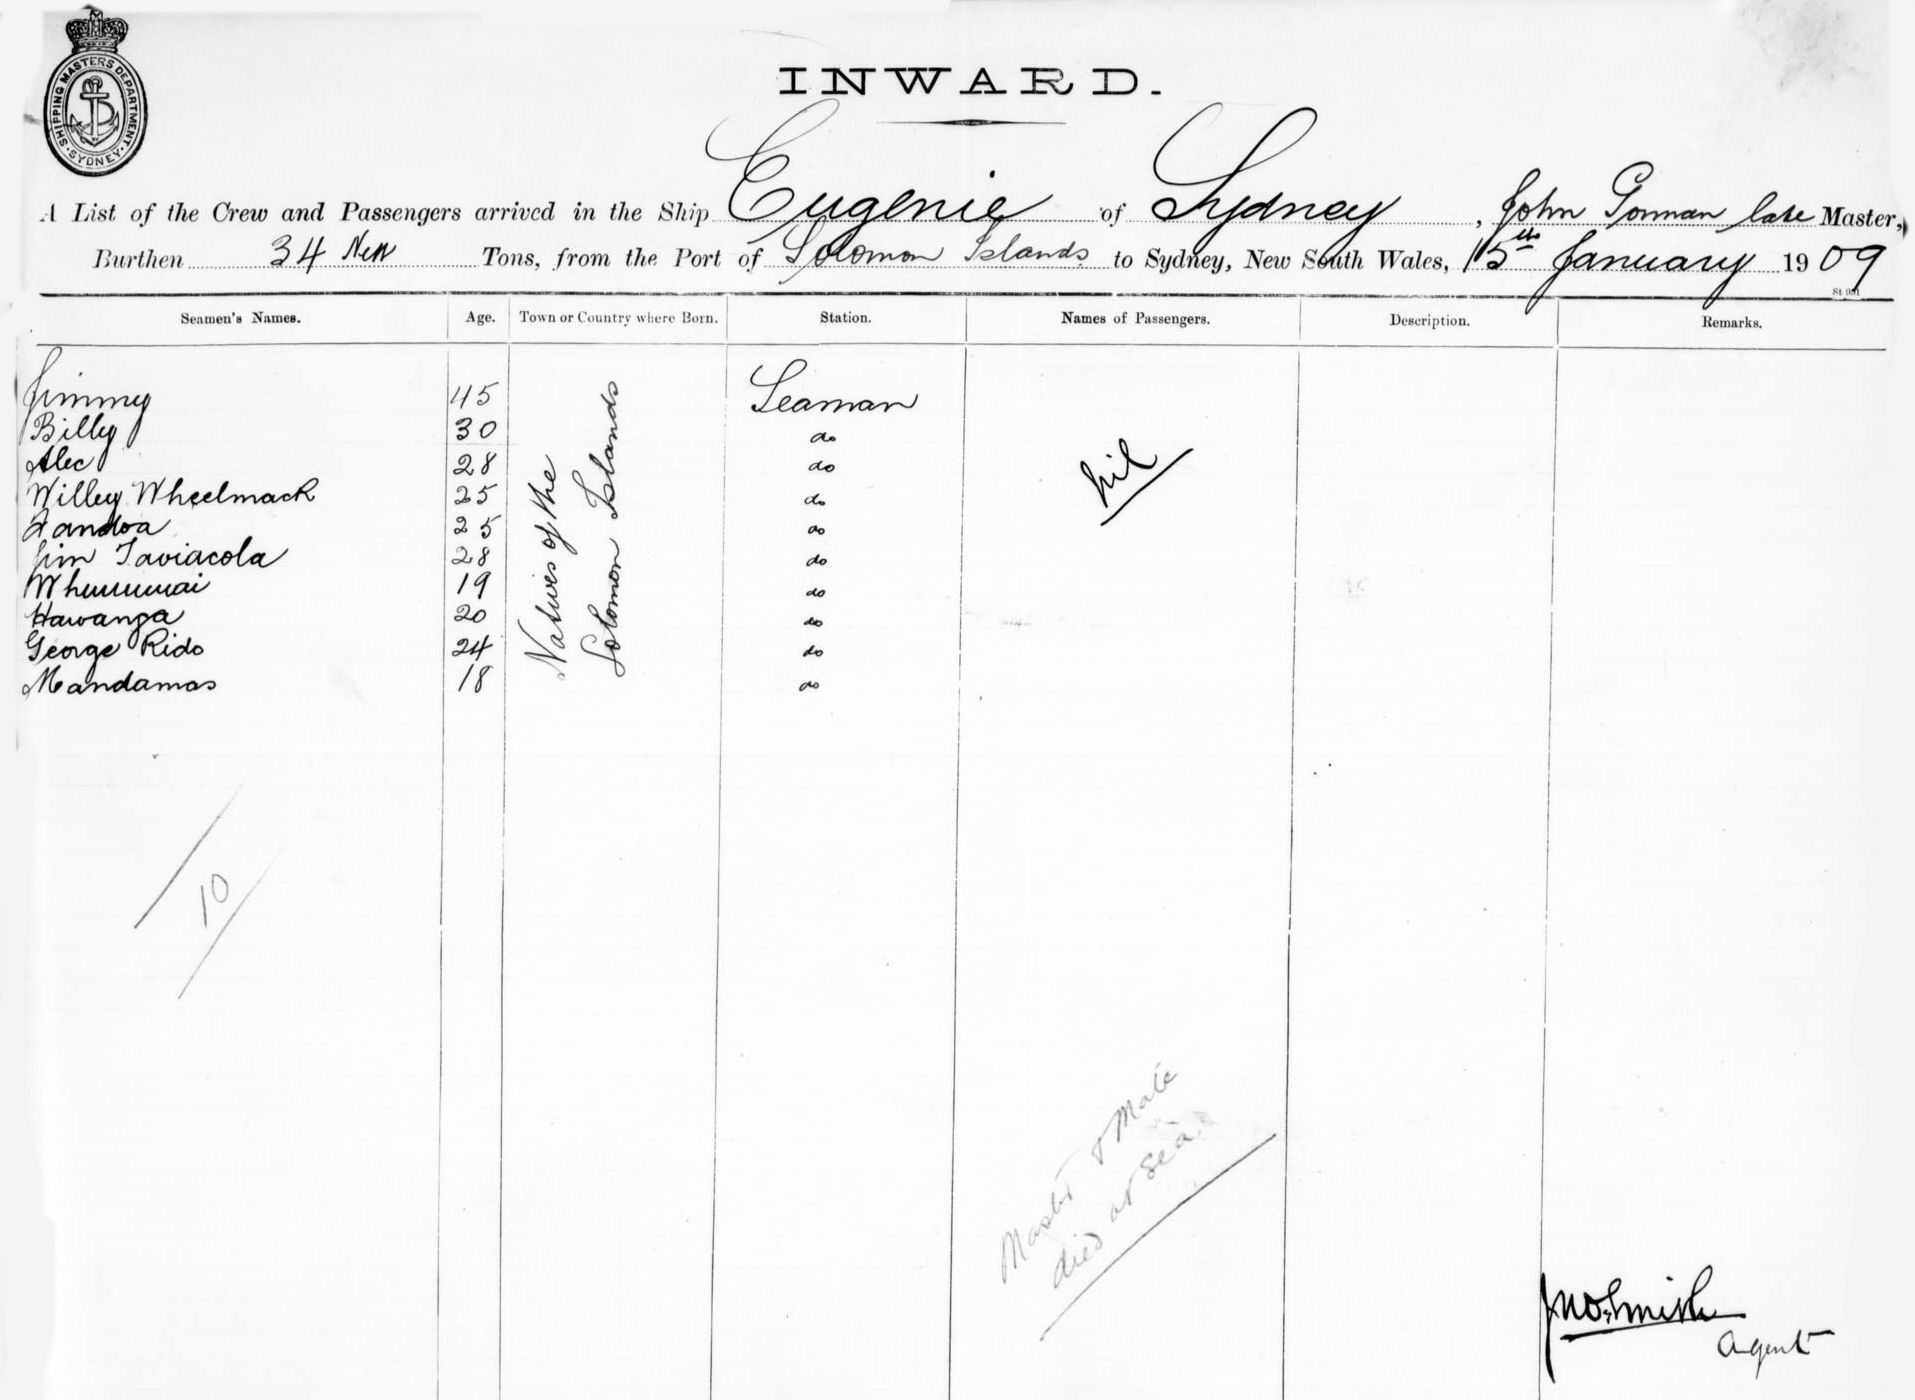 SHIPPING MASTERS DEPARTMENT. SYDNEY
INWARD.
A List of the Crew and Passengers arrived in the Ship Eugenie of Sydney, John Porman late Master,
Burthen 34 Nett Tons, from the Port of Solomon Islands to Sydney, New South Wales, 15th January 1909
Seamen's Names. Age. Town or Country where Born. Station. Names of Passengers. Description. Remarks.
Jimmy 45 Seaman
Billy 30 do
Alec 28 do
Willey Wheelmack 25 do
25 do
Jim Taviacola 28 do
19 do
Hawanga 20 do
George Rido 24 do
Mandamas 18 do
Natives of the
Solomon Islands
nil
10
Master & Mate
died at sea
Jno. Smith
Agent